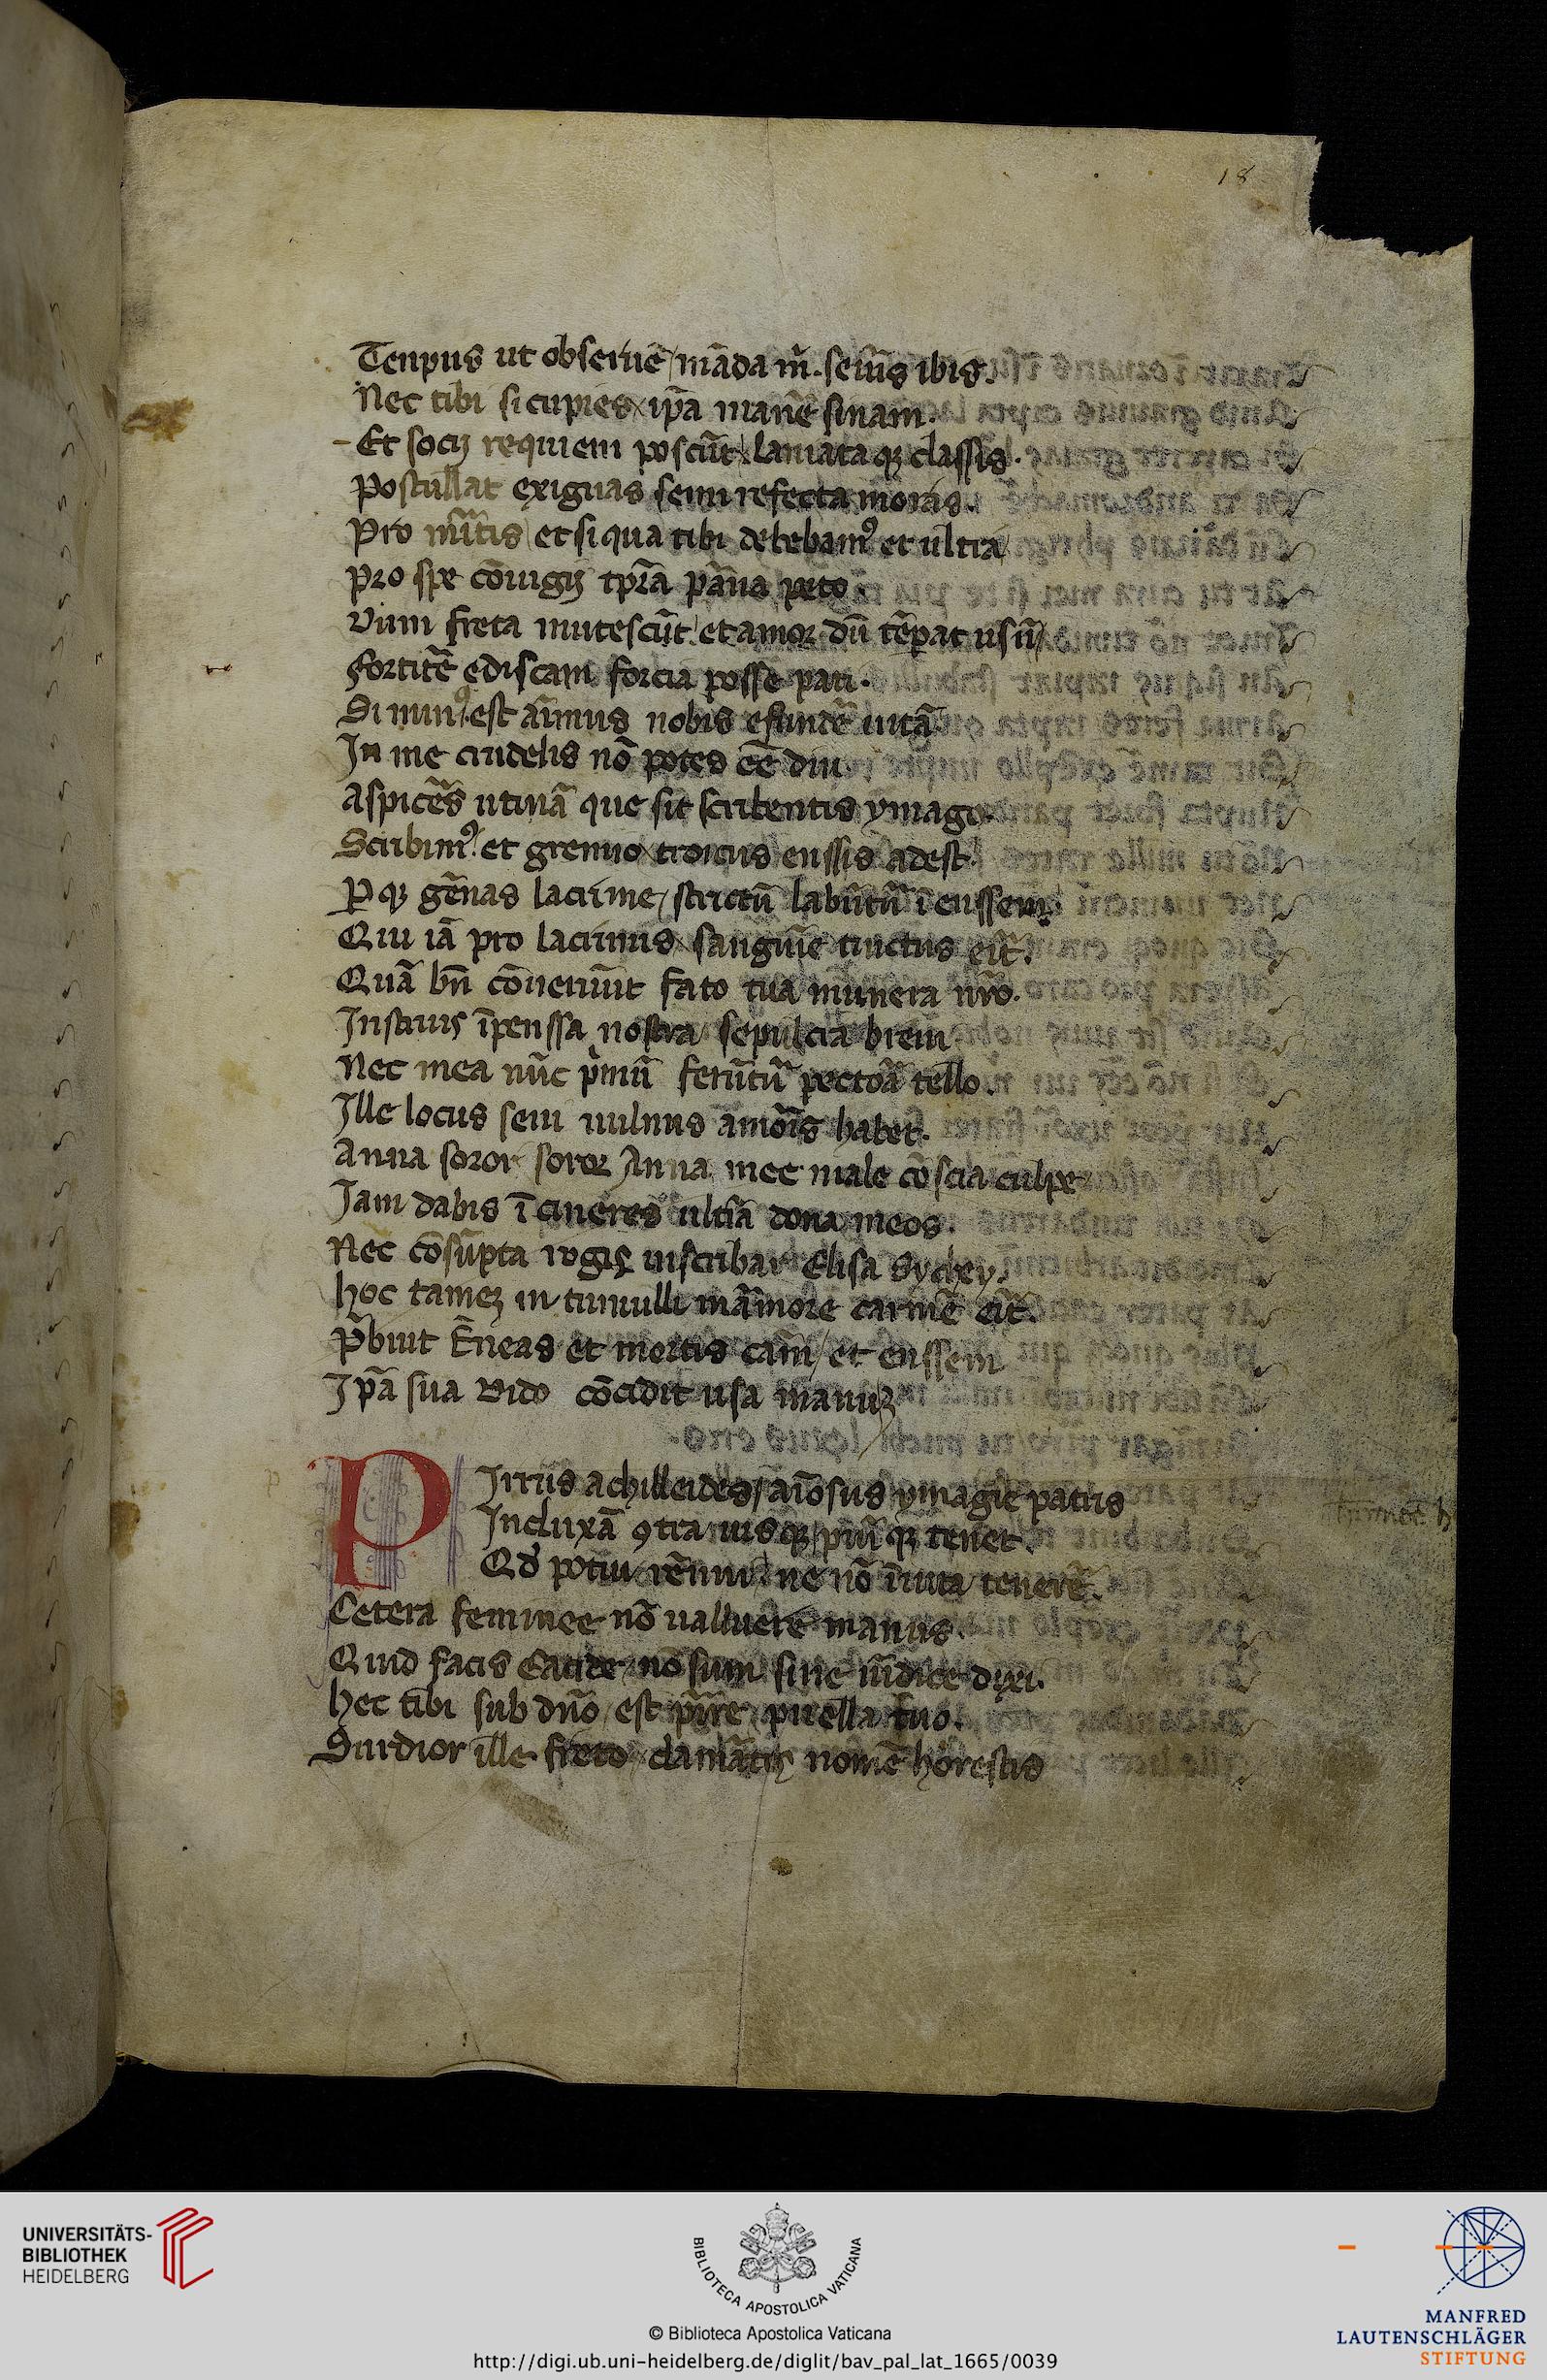 18
Tenpus ut obseruē / māda m̄. seriũs ibis.
Nec tibi si cupies ip̄a manē sinam.
Et socij requiem poscūt laniataqȝ classis.
Postullat exiguas semi refecta moras.
Pro m̄itis et si qua tibi debebamꝰ et ultra
Pro spe cōiugij tp̄ra parua peto.
Dum freta mitescūt et amor dū tēperat usū
Fortitē ediscam forcia posse pati.
Si minꝰ est animus nobis efundē uitā
In me crudelis nō potes eē diu
Aspicēs utinā que sit scribentis ymago.
Scribimꝰ et gremio troicus enssis adest.
Perqȝ gēnas lacrime / strictū labūtur̄ ī enssem
Qui iā pro lacrimis sanguīe tinctus erit.
Quā bn̄ cōueniūt fato tua munera nr̄o.
Instruis īpenssa nostra sepulcra breui
Nec mea nūc primū feriūtur̄ pectora tello.
Ille locus seui uulnus amoris habet.
Anna soror soror Anna mee male cōscia culpe
Iam dabis ī cineres ultīa dona meos.
Nec cōsūpta rogis inscribar Elisa Sychey.
Hoc tameȝ in tumulli marmore carmē erit.
P̄buit Eneas et mortis cam̄ / et enssem
Ip̄a sua Dido cōcidit usa manuȝ
PIrrus achilleides / aīosus ymagīe patris
Incluxā ꝯtra iusqȝ piūqȝ tenet.
Qd̄ potui rēnui ne nō īuita tenerē.
Cetera feminee nō ualluere manus.
Quid facis Eacide nō sum sine uīdice dixi.
Hec tibi sub dn̄o est pirre puella tuo.
Surdior ille freto clamātis nomē horestis
UNIVERSITÄTS-
BIBLIOTHEK
HEIDELBERG
BIBLIOTECA APOSTOLICA VATICANA
© Biblioteca Apostolica Vaticana
http://digi.ub.uni-heidelberg.de/diglit/bav_pal_lat_1665/0039
MANFRED
LAUTENSCHLÄGER
STIFTUNG